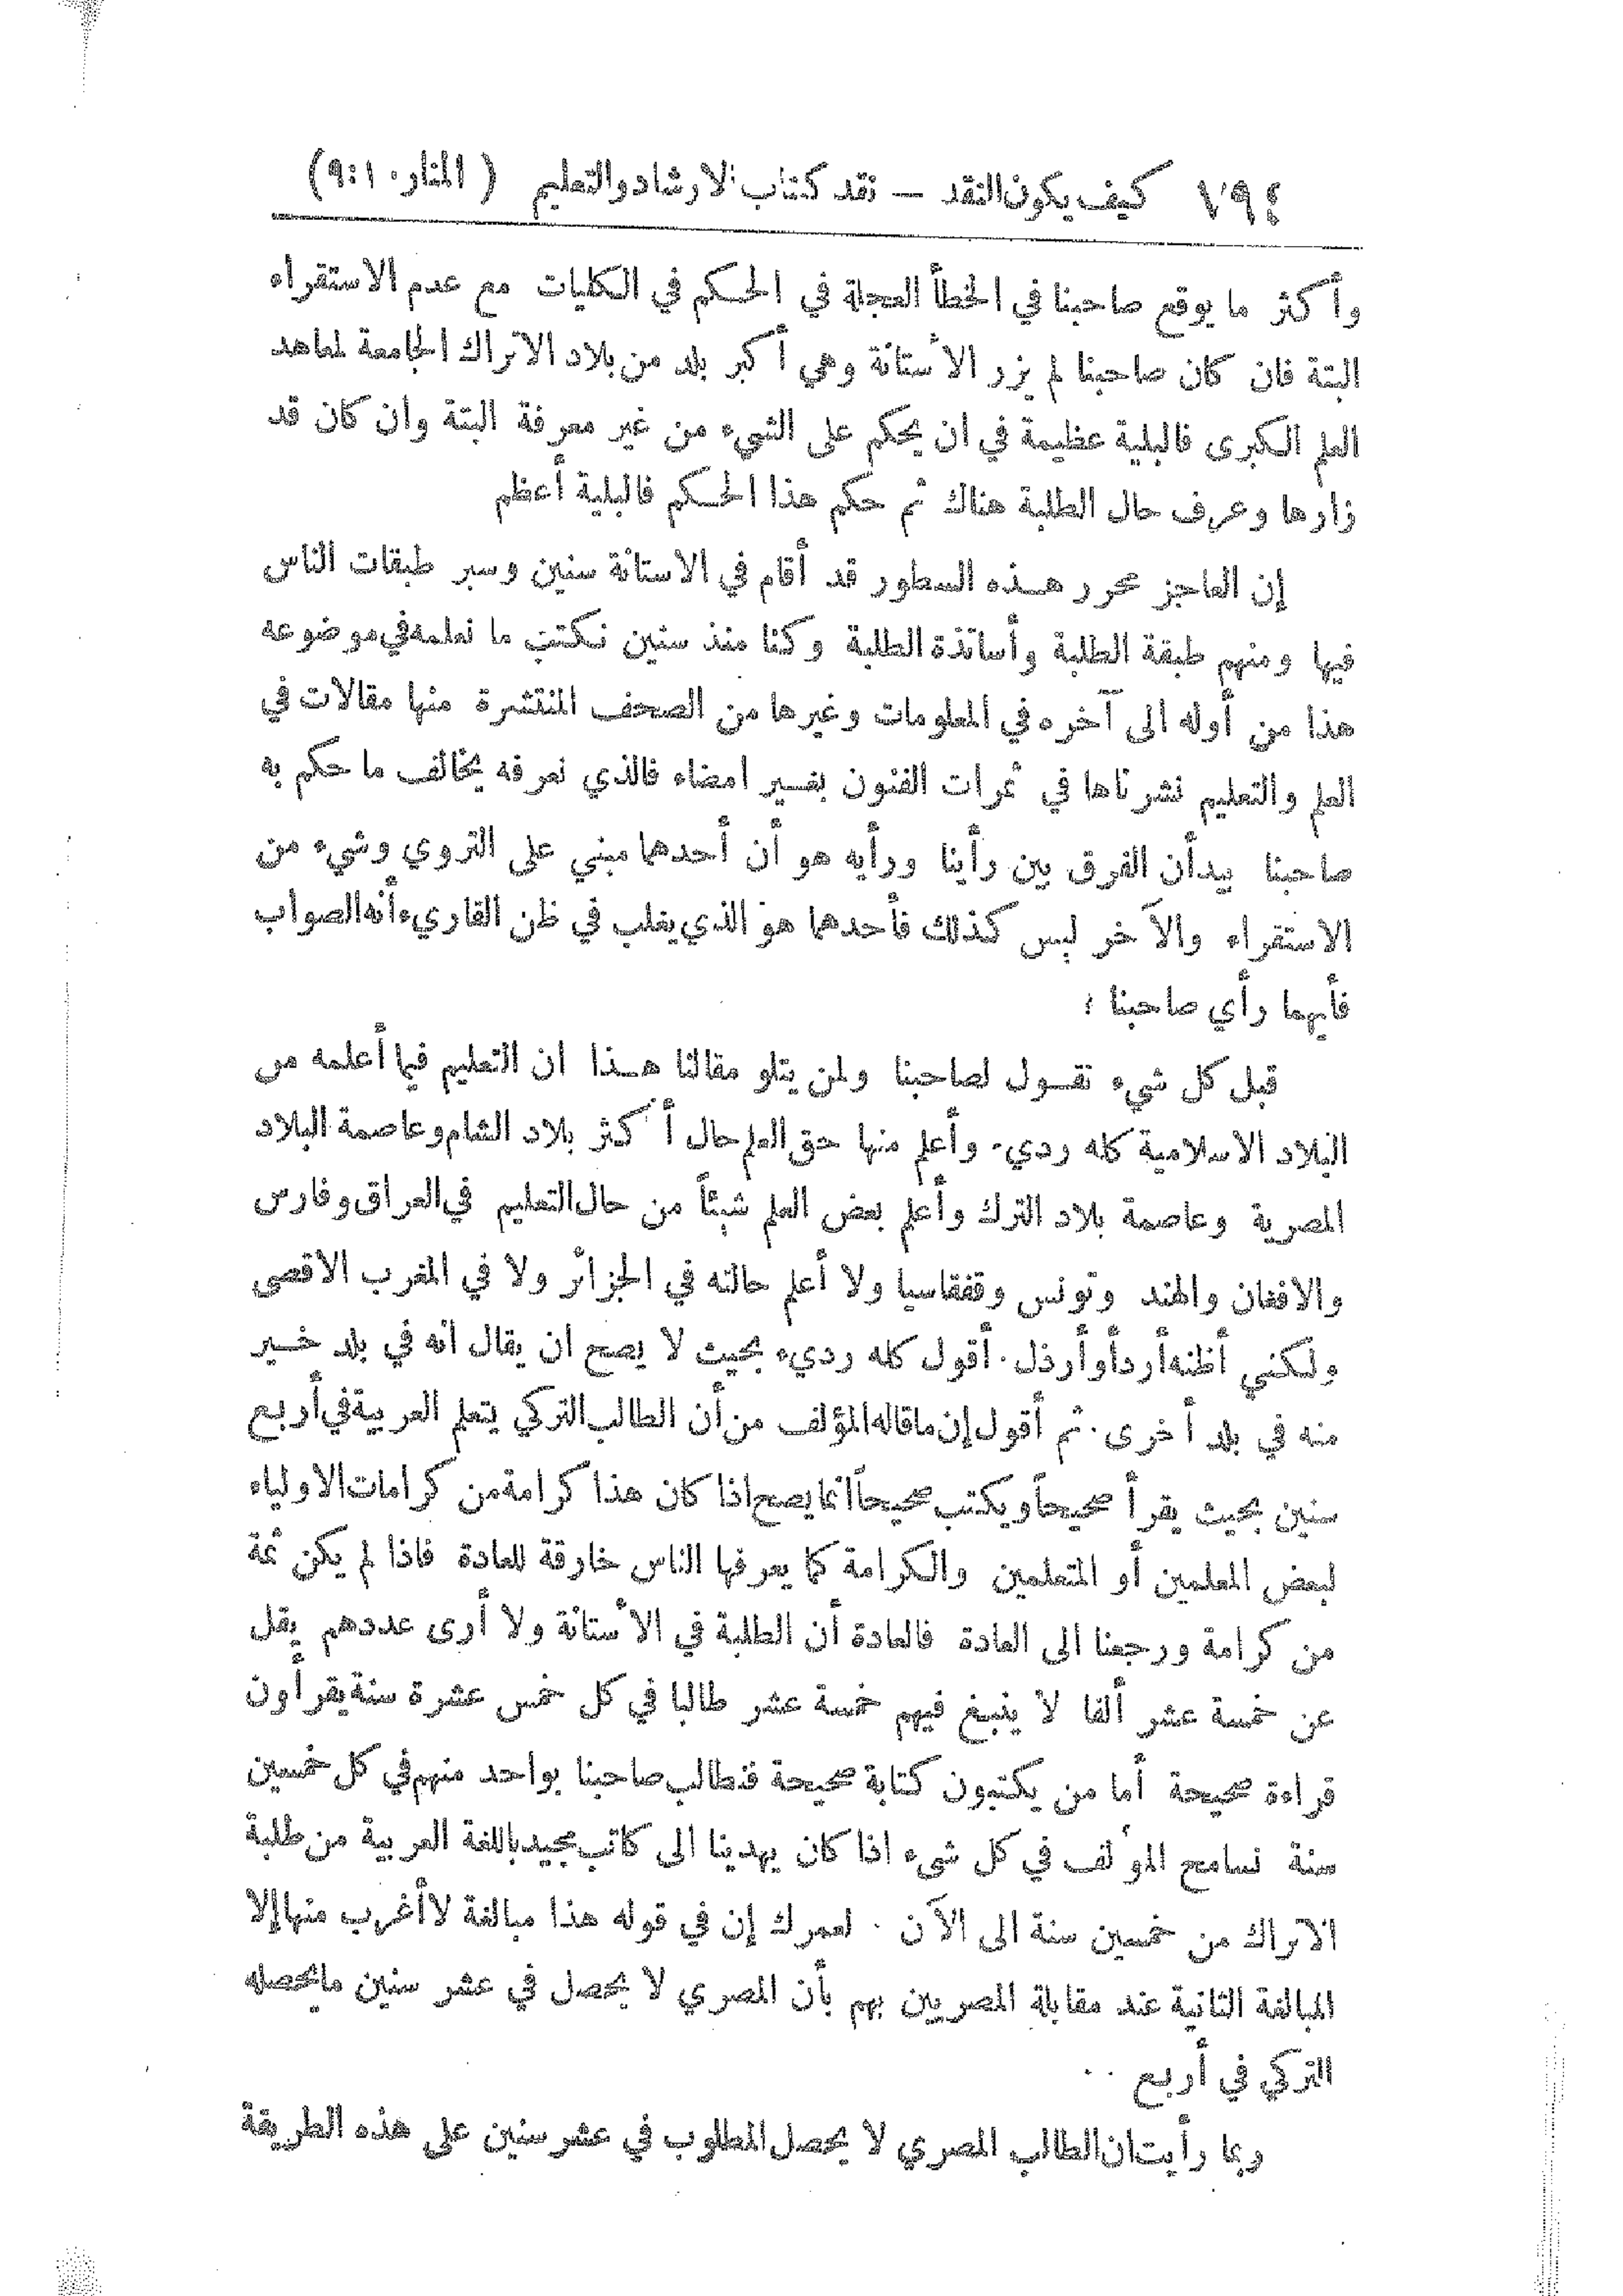 ٧٩٤ كيف يكون النقد — نقد كتاب الارشاد والتعليم ( المنار ١٠ : ٩)
وأكثر ما يوقع صاحبنا في الخطأ العجلة في الحكم في الكليات مع عدم الاستقراء
البتة فان كان صاحبنا لم يزر الاستانة وهي أكبر بلد من بلاد الاتراك الجامعة لمعاهد
العلم الكبرى فالبلية عظيمة في ان يحكم على الشيء من غير معرفة البتة وان كان قد
زارها وعرف حال الطلبة هناك ثم حكم هذا الحكم فالبلية أعظم
إن العاجز محرر هذه السطور قد أقام في الاستانة سنين وسبر طبقات الناس
فيها ومنهم طبقة الطلبة وأساتذة الطلبة وكنا منذ سنين نكتب ما نعلمه في موضوعه
هذا من أوله الى آخره في المعلومات وغيرها من الصحف المنتشرة منها مقالات في
العلم والتعليم نشرناها في ثمرات الفنون بغير امضاء فالذي نعرفه يخالف ما حكم به
صاحبنا بيدأن الفرق بين رأينا ورأيه هو أن أحدهما مبني على التروي وشيء من
الاستقراء والآخر ليس كذلك فأحدهما هو الذي يغلب في ظن القاريء أنه الصواب
فأيهما رأي صاحبنا ؟
قبل كل شيء نقول لصاحبنا ولمن يتلو مقالنا هذا ان التعليم فيما أعلمه من
البلاد الاسلامية كله رديء وأعلم منها حق العلم حال أكثر بلاد الشام وعاصمة البلاد
المصرية وعاصمة بلاد الترك وأعلم بعض العلم شيئاً من حال التعليم في العراق وفارس
والافغان والهند وتونس وقفقاسيا ولا أعلم حالته في الجزائر ولا في المغرب الاقصى
ولكني أظنه أردأ وأرذل . أقول كله رديء بحيث لا يصح ان يقال انه في بلد خير
منه في بلد أخرى . ثم أقول إن ما قاله المؤلف من أن الطالب التركي يتعلم العربية في أربع
سنين بحيث يقرأ صحيحاً ويكتب صحيحاً انما يصح اذا كان هذا كرامة من كرامات الاولياء
لبعض المعلمين أو المتعلمين والكرامة كما يعرفها الناس خارقة للعادة فاذا لم يكن ثمة
من كرامة ورجعنا الى العادة فالعادة أن الطلبة في الاستانة ولا أرى عددهم يقل
عن خمسة عشر ألفا لا ينبغ فيهم خمسة عشر طالبا في كل خمس عشرة سنة يقرأون
قراءة صحيحة أما من يكتبون كتابة صحيحة فنطالب صاحبنا بواحد منهم في كل خمسين
سنة نسامح المؤلف في كل شيء اذا كان يهدينا الى كاتب مجيد باللغة العربية من طلبة
الاتراك من خمسين سنة الى الآن . لعمرك إن في قوله هذا مبالغة لا أغرب منها إلا
المبالغة الثانية عند مقابلة المصريين بهم بأن المصري لا يحصل في عشر سنين ما يحصله
التركي في أربع . .
ربما رأيت ان الطالب المصري لا يحصل المطلوب في عشر سنين على هذه الطريقة